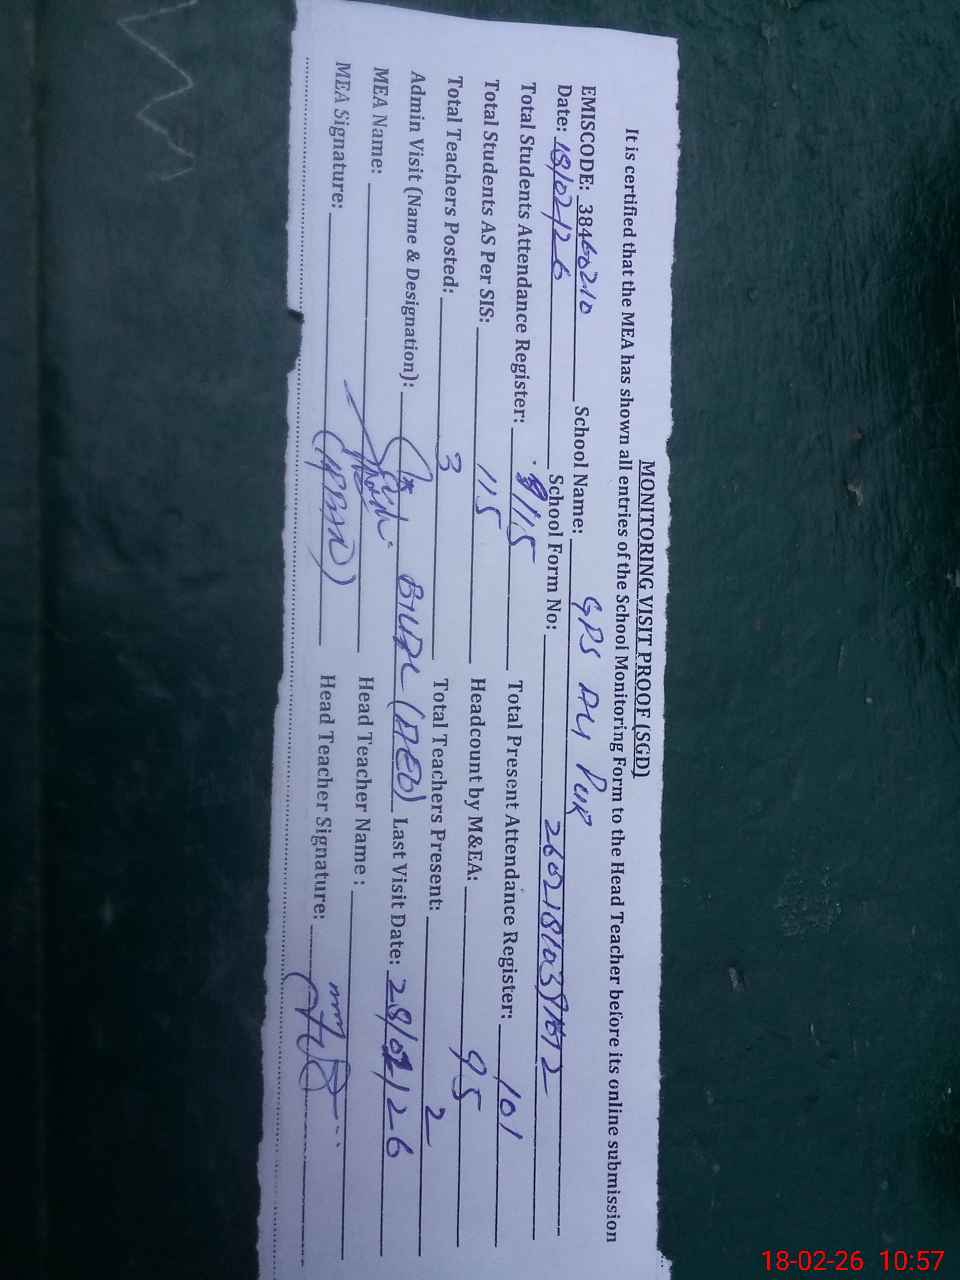 MONITORING VISIT PROOF (SGD)
It is certified that the MEA has shown all entries of the School Monitoring Form to the Head Teacher before its online submission
EMISCODE: 38460210 School Name: GPS ALI PUR
Date: 18/02/26 School Form No:
Total Students Attendance Register: 115 Total Present Attendance Register: 101
Total Students AS Per SIS: 115 Headcount by M&EA: 95
Total Teachers Posted: 3 Total Teachers Present: 2
Admin Visit (Name & Designation): (AEO) Last Visit Date: 28/01/26
MEA Name: Head Teacher Name :
MEA Signature: Head Teacher Signature:
18-02-26 10:57